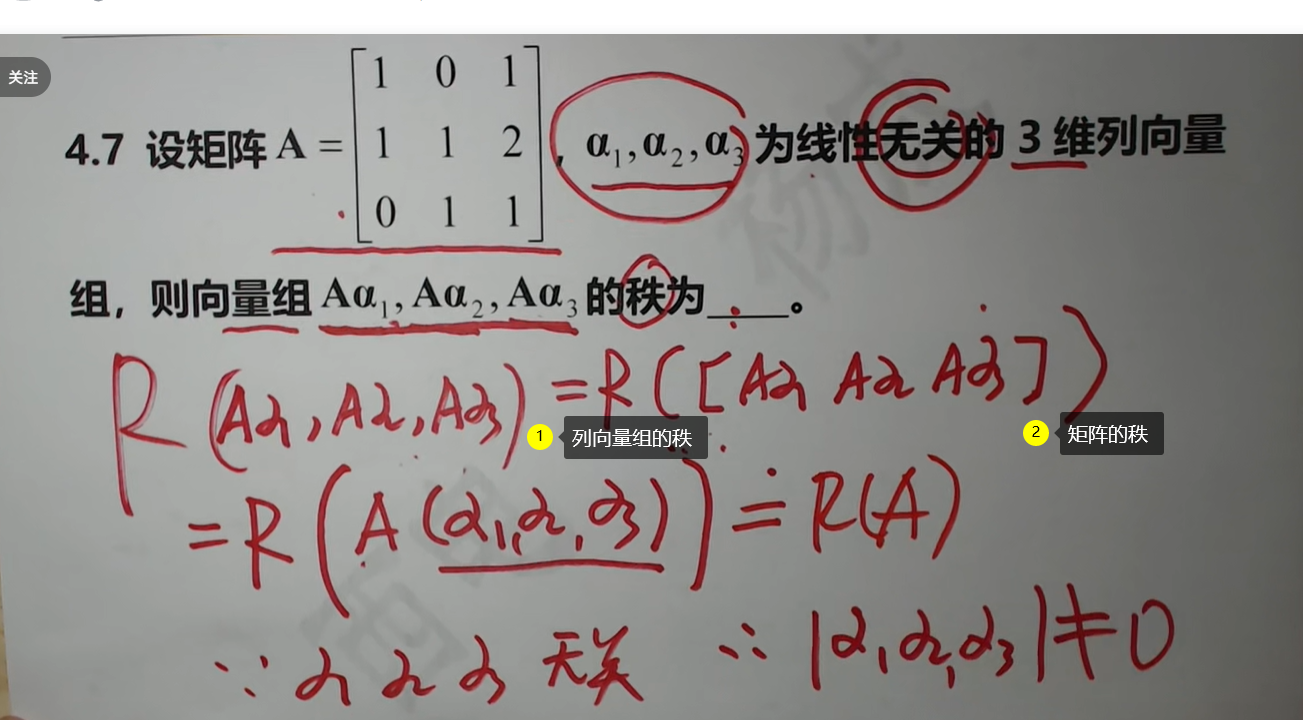 关注
4.7 设矩阵 A = [1 0 1; 1 1 2; 0 1 1], α₁,α₂,α₃ 为线性无关的 3 维列向量
组，则向量组 Aα₁,Aα₂,Aα₃ 的秩为____。
R(Aα₁,Aα₂,Aα₃) = R([Aα₁ Aα₂ Aα₃])
1 列向量组的秩 2 矩阵的秩
= R(A(α₁,α₂,α₃)) = R(A)
∵ α₁ α₂ α₃ 无关 ∴ |α₁,α₂,α₃| ≠ 0